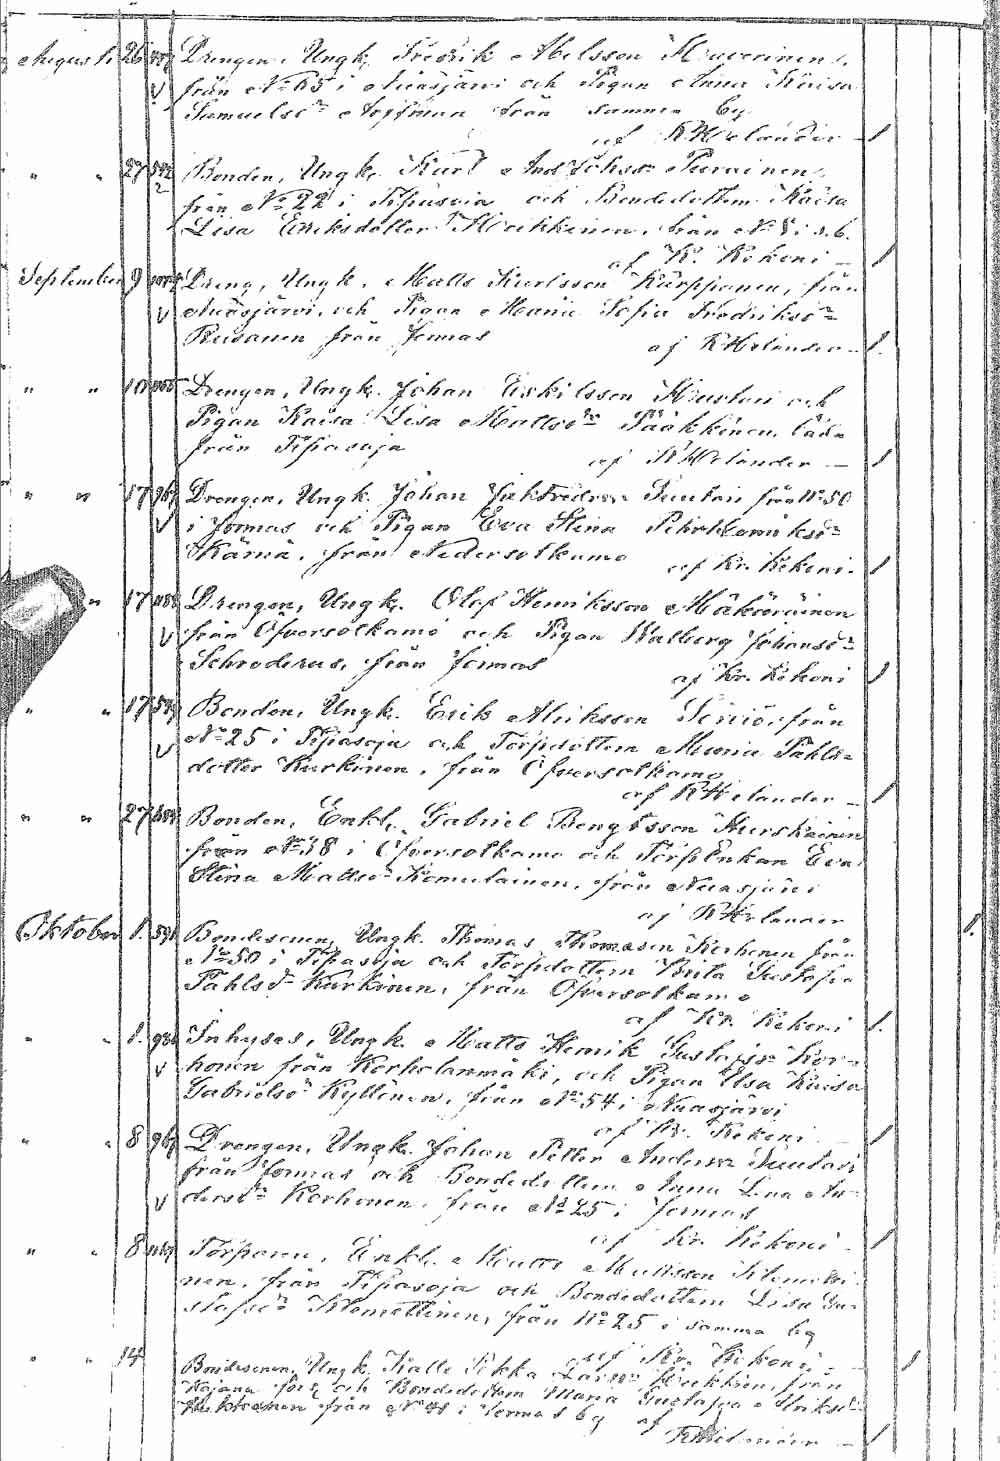 Augusti 26 Drengen, Ungk. Fredrik Abelsson Huverinen,
från No 65 i Nuasjärvi och Pigan Anna Kaisa
Samuelsdr Hoffman från samma by
af K Helander 1
" " 27 542 Bonden, Ungk. Karl And Johss Purainen,
från No 22 i Tipasoja och Bondedottern Kaisa
Lisa Eriksdotter Heikkinen, från No 8 i s. b.
af K. Kekoni 1
September 9 Dreng, Ungk. Matts Karlsson Karppanen, från
Nuasjärvi, och Pigan Maria Sofia Fredriksdr
Rusanen från Jormas af K Helander 1.
" " 10 Drengen, Ungk. Johan Eskilsson Hustari och
Pigan Kaisa Lisa Mattsdr Pääkkönen, båda
från Tipasoja
af K Helander 1
" " 17 967 Drengen, Ungk. Johan Suutari från No 50
i Jormas och Pigan Eva Stina
Kärnä, från Nedersotkamo af Kr. Kekoni 1
" 17 Drengen, Ungk. Olof Henriksson Mäkäräinen
från Öfversotkamo och Pigan Valberg Johansdr
Schroderus, från Jormas
af Kr. Kekoni 1
" " 17 Bonden, Ungk. Erik Alriksson från
No 25 i Tipasoja och Torpdottern Maria Påhls-
dotter Kurkinen, från Öfversotkamo
af K Helander 1
" " 27 Bonden, Enkl. Gabriel Bengtsson Hurskainen
från No 38 i Öfversotkamo och TorpEnkan Eva
Stina Mattsdr Komulainen, från Nuasjärvi
af K Helander 1.
Oktober 1. Bondesonen, Ungk. Thomas Thomasson Korhonen från
No 50 i Tipasoja och Torpdottern Brita Gustafva
Påhlsdr Kurkinen, från Öfversotkamo
af Kr. Kekoni 1.
" " 1. Inhyses, Ungk. Matts Henrik Gustafss Kor-
honen från Korholanmäki, och Pigan Elsa Kaisa
Gabrielsdr Kyllönen, från No 54 i Nuasjärvi
af Kr. Kekoni 1
" " 8 967 Drengen, Ungk. Johan Petter Anderss Suutari
från Jormas och Bondedottern Anna Lena An-
dersdr Korhonen, från No 25 i Jormas
af Kr. Kekoni 1
" " 8 Torparen, Enkl. Matts Mattsson Klemetti-
nen, från Tipasoja och Bondedottern Lisa Gu-
stafsdr Klemettinen, från No 25 i samma by
af Kr. Kekoni 1
" " 14 Bondesonen, Ungk. Kalle Pekka Larss Heikkinen, från
Kajana och Bondedottern Maria Gustafva Alriksdr
från No i Jormas by af
K Helander 1